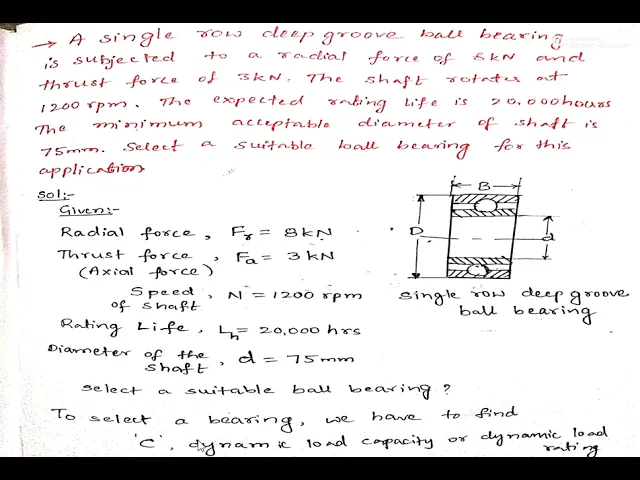 → A single row deep groove ball bearing
is subjected to a radial force of 8kN and
thrust force of 3kN. The shaft rotates at
1200 rpm. The expected rating life is 20,000 hours
The minimum acceptable diameter of shaft is
75mm. Select a suitable ball bearing for this
application.
Sol:-
Given:-
Radial force, Fr = 8kN
Thrust force, Fa = 3kN
(Axial force)
Speed of shaft, N = 1200 rpm
Rating Life, Lh = 20,000 hrs
Diameter of the shaft, d = 75mm
B
D
d
single row deep groove
ball bearing
select a suitable ball bearing?
To select a bearing, we have to find
'C', dynamic load capacity or dynamic load
rating